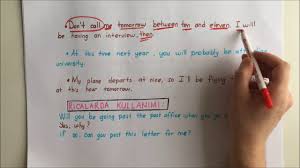 • Don't call me tomorrow between ten and eleven. I will
be having an interview then.
• At this time next year, you will probably be
university.
• My plane departs at nice, so I'll be flying
at this hour tomorrow.
RICALARDA KULLANIMI:
Will you be going past the post office when you
Yes, why?
If so, can you post this letter for me?